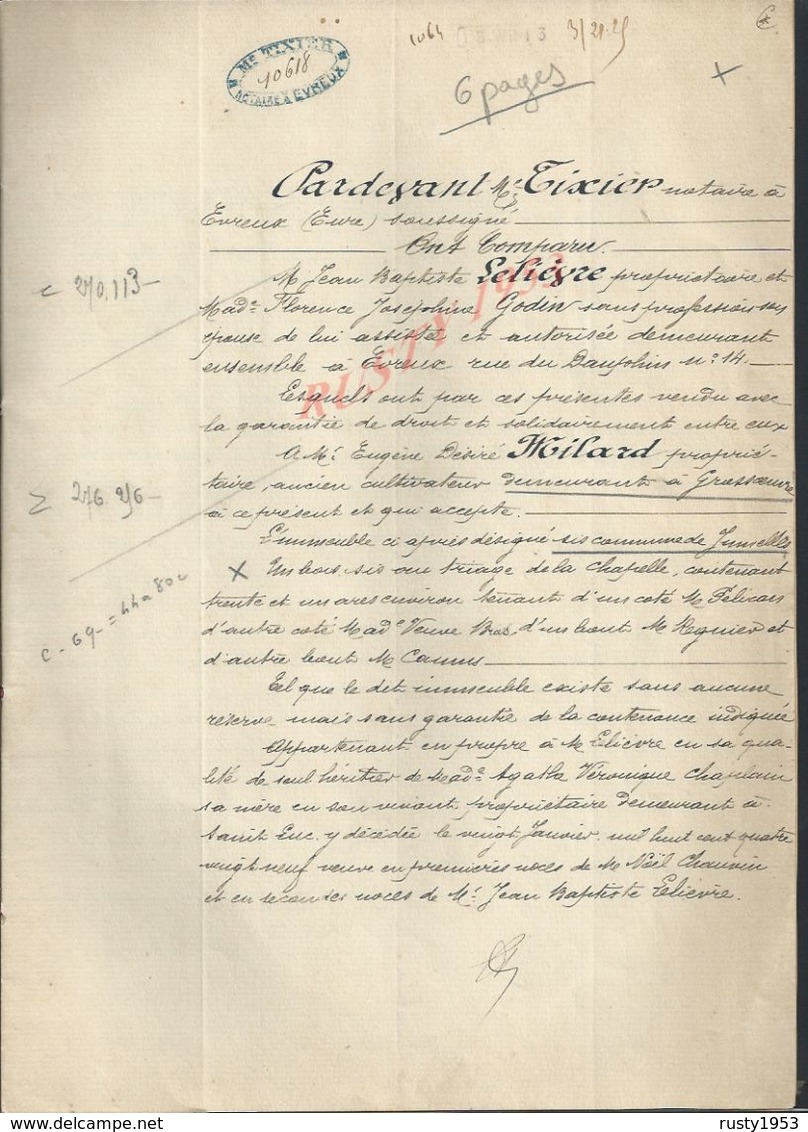 Mᵉ TIXIER
10618
NOTAIRE À EVREUX
1064
3/21.25
6 pages
Pardevant Mᵉ Tixier notaire à
Evreux (Eure) soussigné
Ont Comparu.
M Jean Baptiste Lelièvre propriétaire et
Madᵉ Florence Joséphine Godin sans profession son
épouse de lui assistée et autorisée demeurant
ensemble à Evreux rue du Dauphin n° 14.
Lesquels ont par ces présentes vendu avec
la garantie de droit et solidairement entre eux
A Mʳ Eugène Désiré Milard proprié-
taire, ancien cultivateur demeurant à Grossoeuvre
à ce présent et qui accepte.
L'immeuble ci après désigné sis commune de Jumelles
Un bois sis au triage de la Chapelle, contenant
trente et un ares environ tenant d'un coté M Pelicars
d'autre coté Madᵉ Veuve Bras, d'un bout M Mynier et
d'autre bout M Camus
Tel que le dit immeuble existe sans aucune
réserve mais sans garantie de la contenance indiquée
Appartenant en propre à M Lelièvre en sa qua-
lité de seul héritier de Madᵉ Agathe Véronique Chaplain
sa mère en son vivant propriétaire demeurant à
Saint Luc. y décédée le vingt Janvier mil huit cent quatre
vingt neuf veuve en premières noces de M Noël Chauvin
et en secondes noces de Mʳ Jean Baptiste Lelièvre.
c 270.113
276 216
c - 69 - = 44a 80c
RUSTY 1953
www.delcampe.net
rusty1953